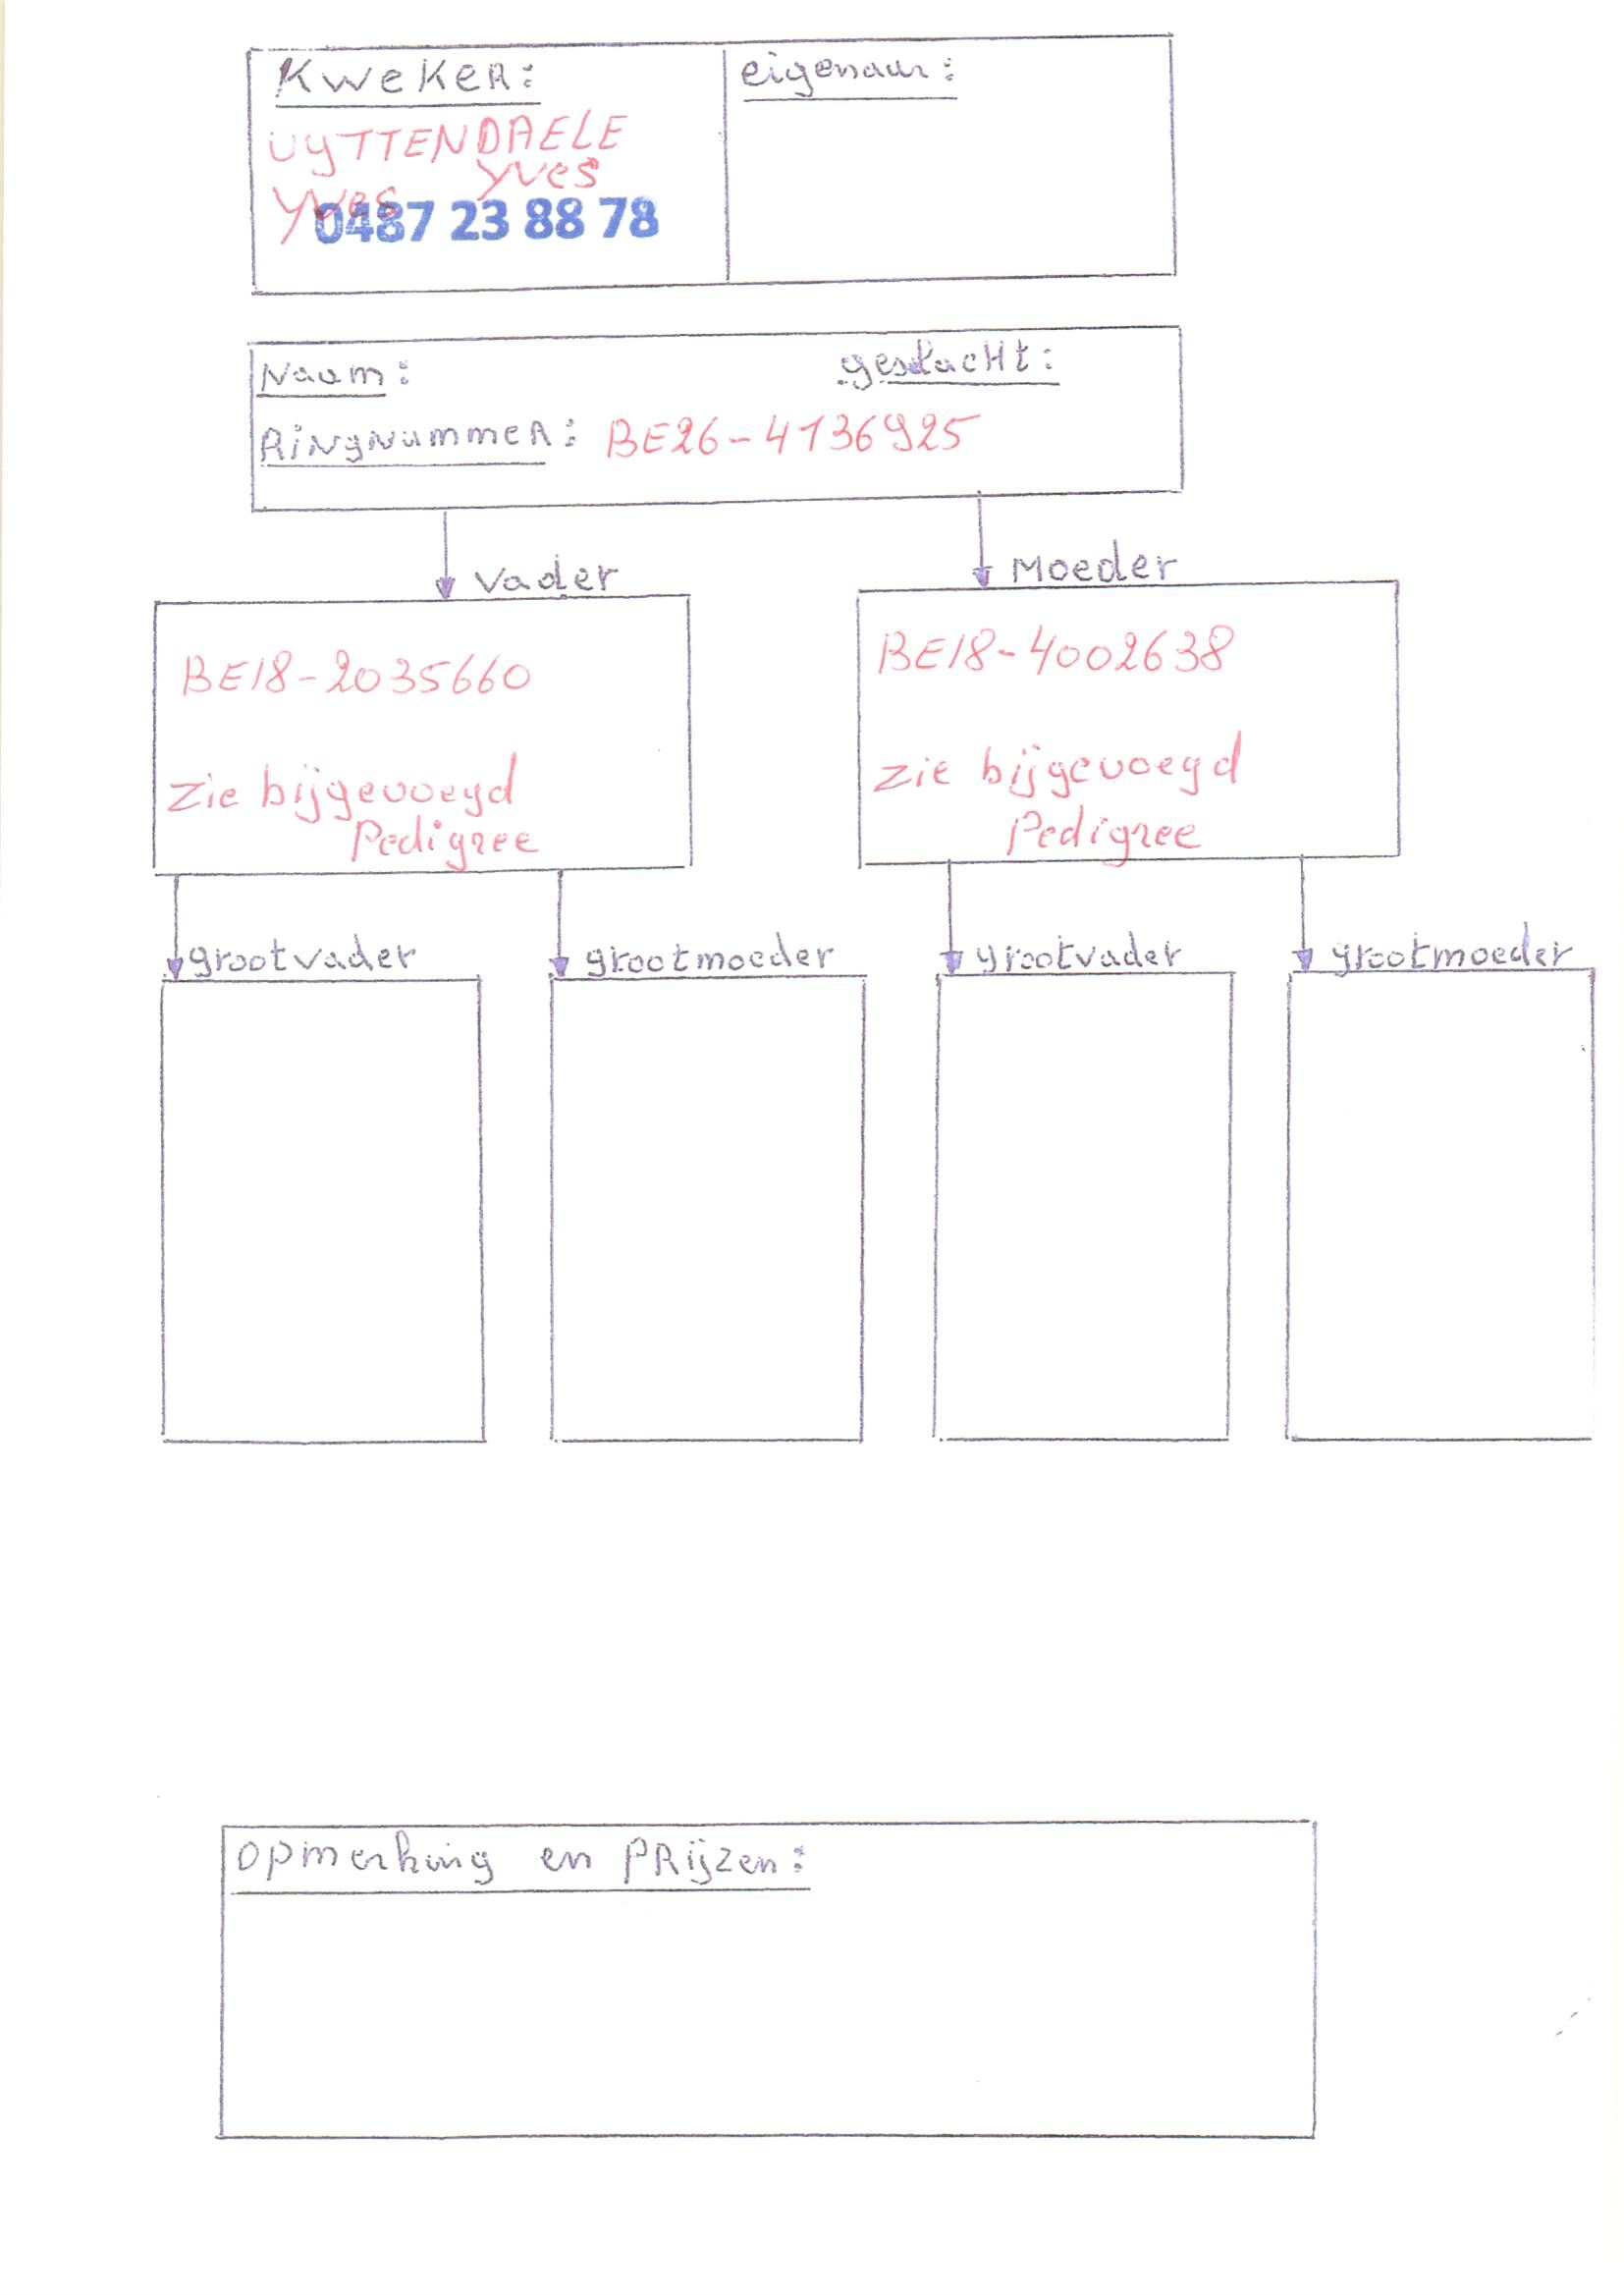 Kweker:
eigenaar:
UYTTENDAELE
Yves
Yves
0487 23 88 78
Naam:
geslacht:
Ringnummer: BE26-4136925
Vader
Moeder
BE18-2035660
zie bijgevoegd
Pedigree
BE18-4002638
zie bijgevoegd
Pedigree
grootvader
grootmoeder
grootvader
grootmoeder
opmerking en PRijzen: